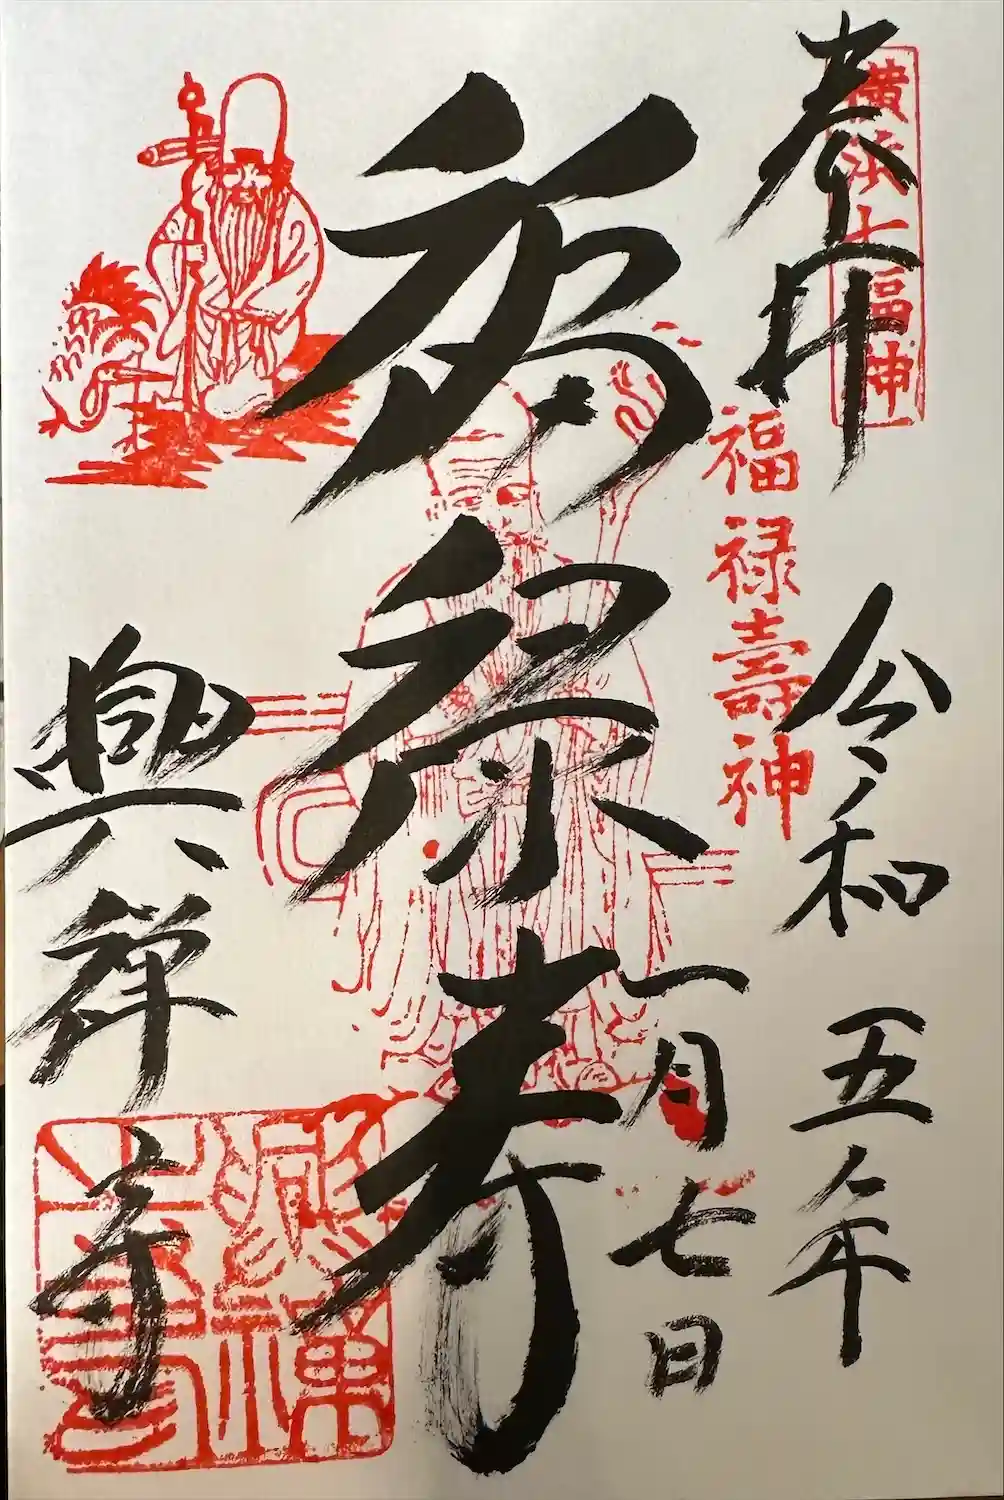 奉拝
横浜七福神
福禄壽神
令和五年
一月七日
福禄寿
興禅寺
興禅寺